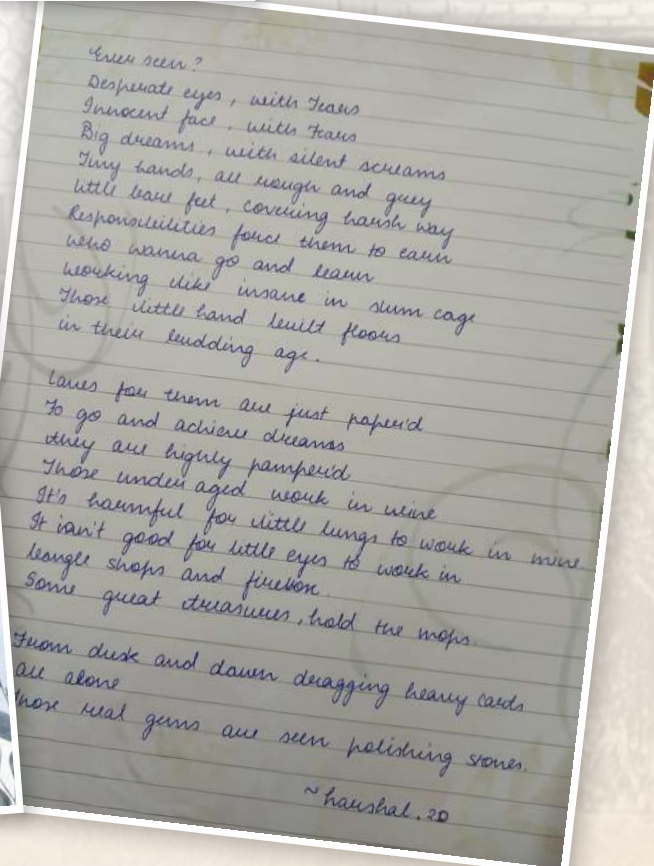 Ever seen?
Desperate eyes, with Tears
Innocent face, with Fears
Big dreams, with silent screams
Tiny hands, all rough and grey
little bare feet, covering harsh way
Responsibilities force them to earn
who wanna go and learn
working like insane in slum cage
Those little hand built floors
in their budding age.
laws for them are just paper'd
To go and achieve dreams
they are highly pamper'd
Those under aged work in wine
It's harmful for little lungs to work in mine.
It isn't good for little eyes to work in
bangle shops and firebox.
Some great treasures, hold the mops.
From dusk and dawn dragging heavy cards
all alone
those real gems are seen polishing stones.
~harshal.20